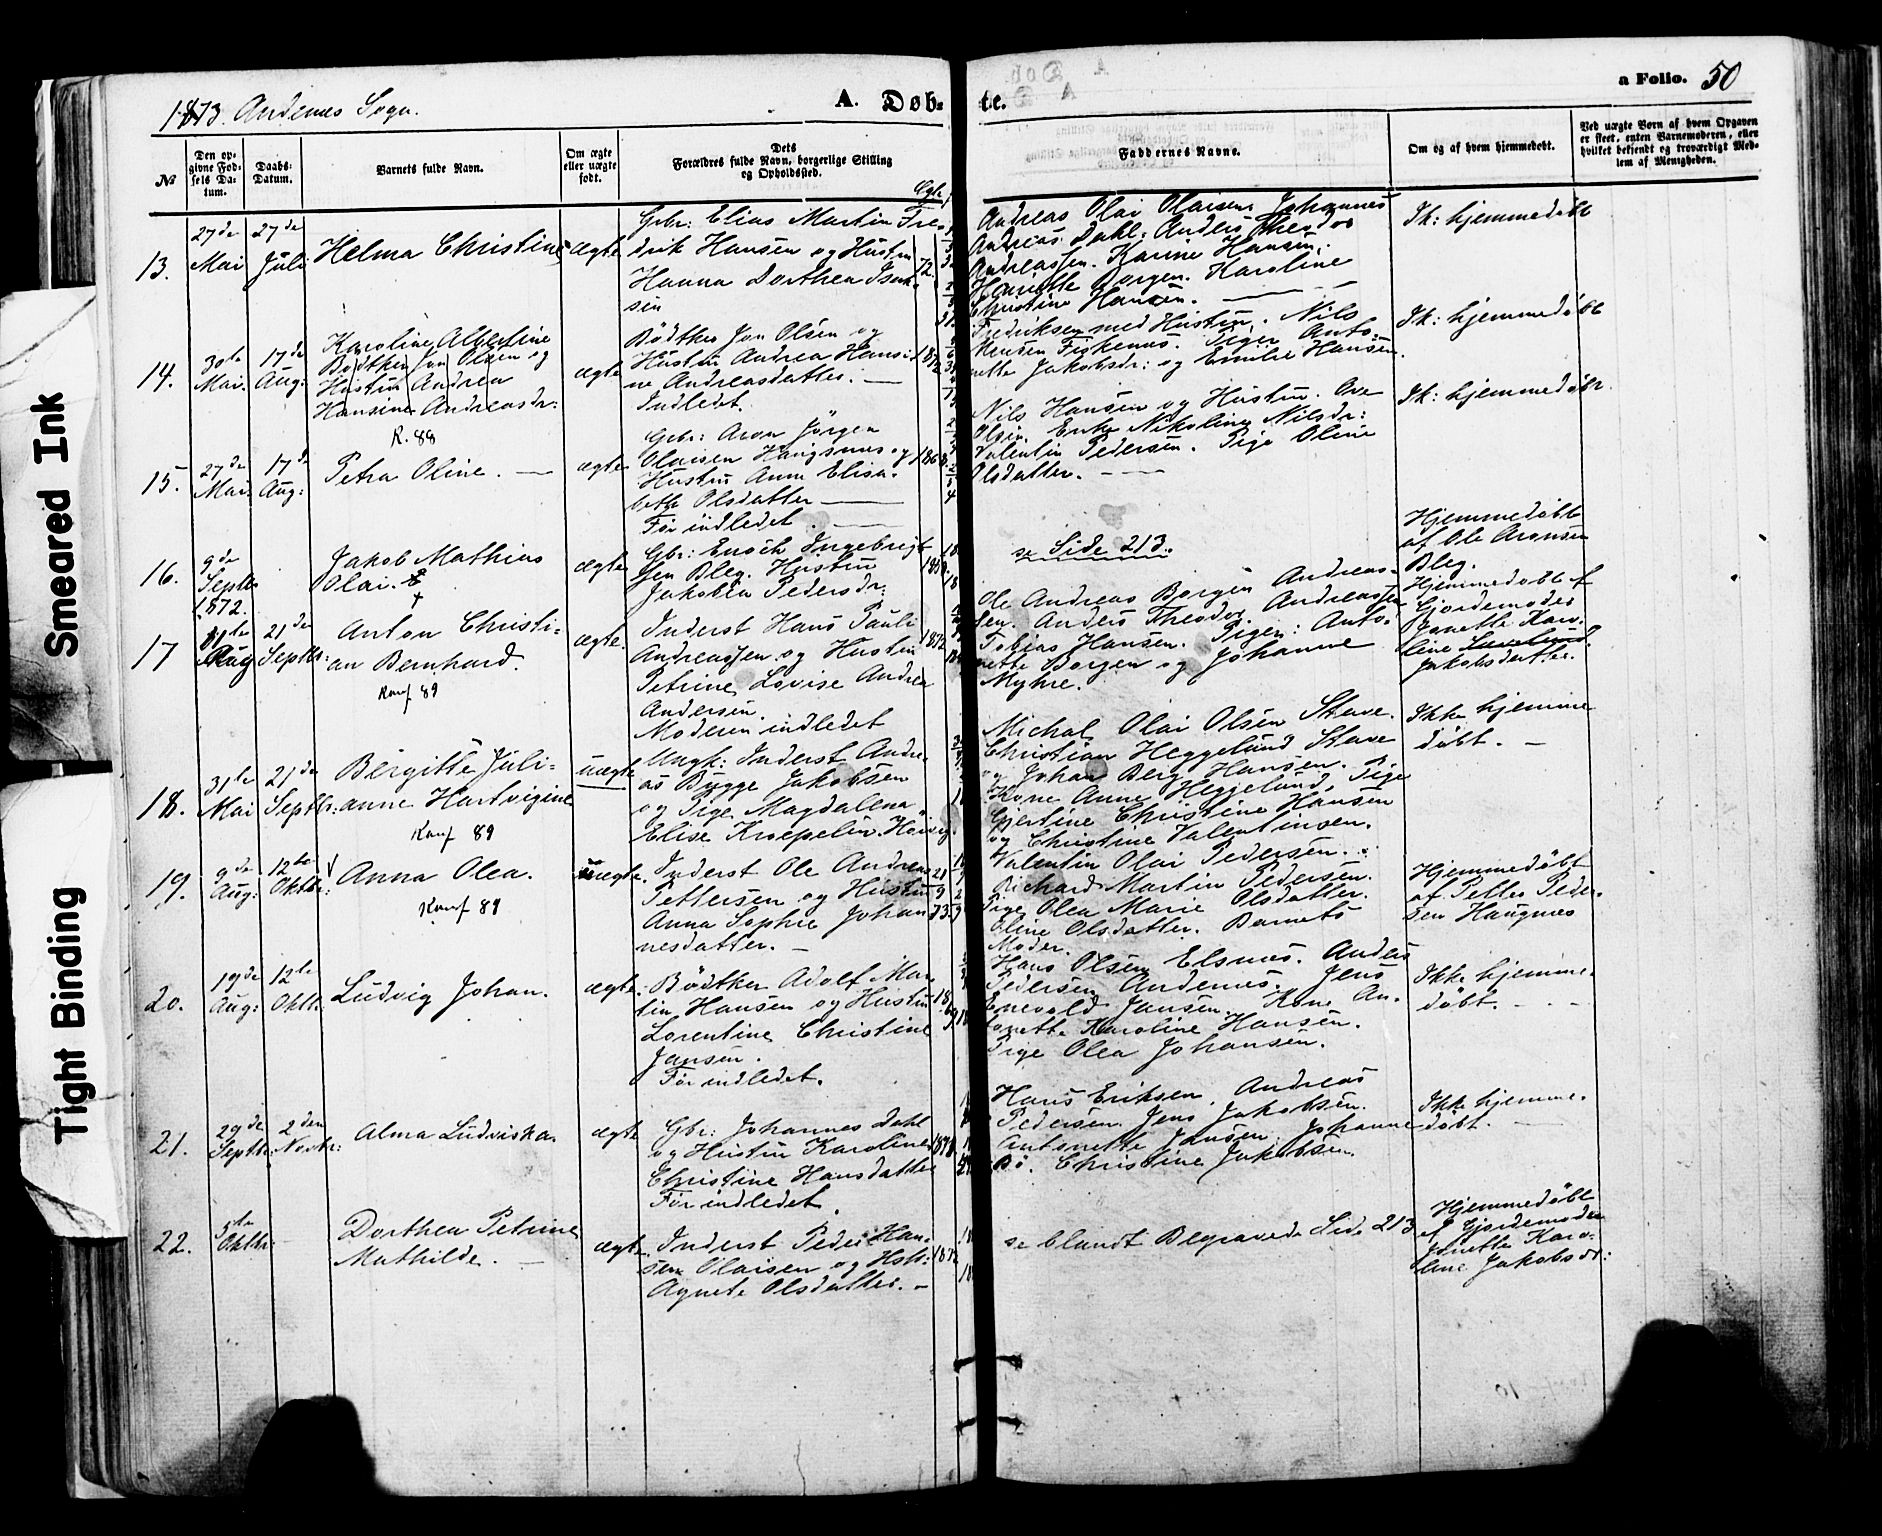 1873. Andenes Sogn.
A. Døb-
te.
a Folio. 50
№
Den op-
givne Fød-
sels Da-
tum.
Daabs-
Datum.
Barnets fulde Navn.
Om ægte
eller uægte
født.
Dets
Forældres fulde Navn, borgerlige Stilling
og Opholdssted.
Faddernes Navne.
Om og af hvem hjemmedøbt.
Ved uægte Børn af hvem Opgaven
er skeet, enten Barnemoderen, eller
hvilket bekjendt og troværdigt Med-
lem af Menigheden.
13.
27de
Mai
27de
Juli
Helma Christine
ægte
Gbr: Elias Martin Fre-
drik Hansen og Hustru
Hanna Dorthea Isak-
sen
72.
Andreas Olai Olaisen. Johannes
Andreas Dahl. Anders Theodor
Andreassen. Karine Hansen.
Henriette Borgen. Karoline
Christine Hansen.
Ik: hjemmedøbt
14.
30te
Mai.
17de
Aug:
Karoline Albertine
Bødtker Jon Olsen og
Hustru Andrea
Hansine Andreasdr:
K. 88
ægte
Bødtker Jon Olsen og
Hustru Andrea Hansi-
ne Andreasdatter. —
Indledet.
1872
Fredriksen med Hustru. Nils
Mensen Fiskenes. Piger Anto-
nette Jakobsdr: og Emilie Hansen.
Ik: hjemmedøbt
15.
27de
Mai.
17de
Aug:
Petra Oline. —
ægte
Gbr: Aron Jørgen
Olaisen Haugnes og
Hustru Anne Elisa-
beth Olsdatter —
Før indledet. —
1868.
Nils Hansen og Hustru. Ove
Olsen. Enke Nikoline Nilsdr:
Valentin Pedersen. Pige Oline
Olsdatter. —
Ik: hjemmedøbt.
16.
9de
Septbr
1872.
Jakob Mathias
Olai. †
ægte
Gbr: Enoch Ingebrigt-
sen Bleg. Hustru
Jakobia Pedersdr:
se Side 213.
Hjemmedøbt
af Ole Aronsen
Bleg.
17
11te
Aug
21de
Septbr:
Anton Christi-
an Bernhard.
Konf 89
ægte.
Inderst Hans Pauli
Andreassen og Hustru
Petrine Lovise Andrea
Andersen.
Moderen indledet
1872
Ole Andreas Borgen Andreas-
sen. Anders Theodor Andreassen
Tobias Hansen. Piger: Anto-
nette Borgen og Johanne
Myhre.
Hjemmedøbt af
Gjordemoder
Jonette Karo-
line
Jakobsdatter.
18.
31te
Mai
21de
Septbr:
Bergitte Juli-
anne Hartvigine
Konf 89
uægte
Ungk: Inderst Andre-
as Bugge Jakobsen
og Pige Magdalena
Elise Kræpelin
Michal Olai Olsen Stave.
Christian Heggelund Stave
og Johan Berg Hansen. Pige
Kone Anne Heggelund. Pige
Gjertine Christine Hansen
og Christine Valentinsen.
Ikke hjemme
døbt. —
19.
9de
Aug:
12te
Oktbr:
Anna Olea.
Konf 89
uægte.
Inderst Ole Andreas
Pettersen og Hustru
Anna Sophie Johan-
nesdatter. —
Valentin Olai Pedersen.
Richard Martin Pedersen.
Pige Olea Marie Olsdatter.
Oline Olsdatter. Barnets
Moder.
Hjemmedøbt
af Petter Peder-
sen Haugnes
20.
19de
Aug:
12te
Oktbr:
Ludvig Johan.
ægte.
Bødtker Adolf Mar-
tin Hansen og Hustru
Lorentine Christine
Jansen.
Før indledet.
Hans Olsen Elsnes. Anders
Pedersen Andenes. Jens
Enevold Jansen. Kone An-
tonette Karoline Hansen.
Pige Olea Johansen.
Ikke hjemme-
døbt. —
21.
29de
Septbr:
2den
Novbr:
Alma Ludviska
ægte
Gbr: Johannes Dahl
og Hustru Karoline
Christine Hansdatter
Før indledet.
Hans Eriksen. Andreas
Pedersen. Jens Jakobsen.
Antonette Jansen. Johanne
Bø. Christine Jakobsen.
Ikke hjemme-
døbt. —
22.
5te
Oktbr:
Dorthea Petrine
Mathilde. —
ægte
Inderst Peder Han-
sen Olaisen og Hstr:
Agnete Olsdatter. —
1872
se blandt Begravede Side 213
Hjemmedøbt
af Gjordemoder
Jonette Karo-
line Jakobsdr:
Smeared Ink
Tight Binding